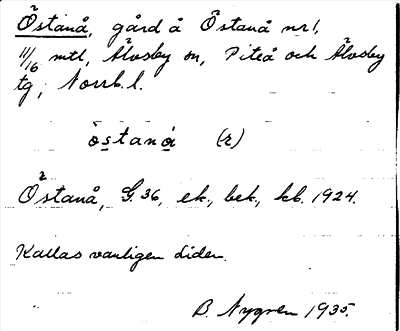 Östanå, gård å Östanå nr 1,
11/16 mtl, Älvsby sn, Piteå och Älvsby
tg, Norrb. l.
östanå (r)
Östanå, G. 36, ek., bek., kb. 1924.
Kallas vanligen Liden.
B. Nygren 1935.